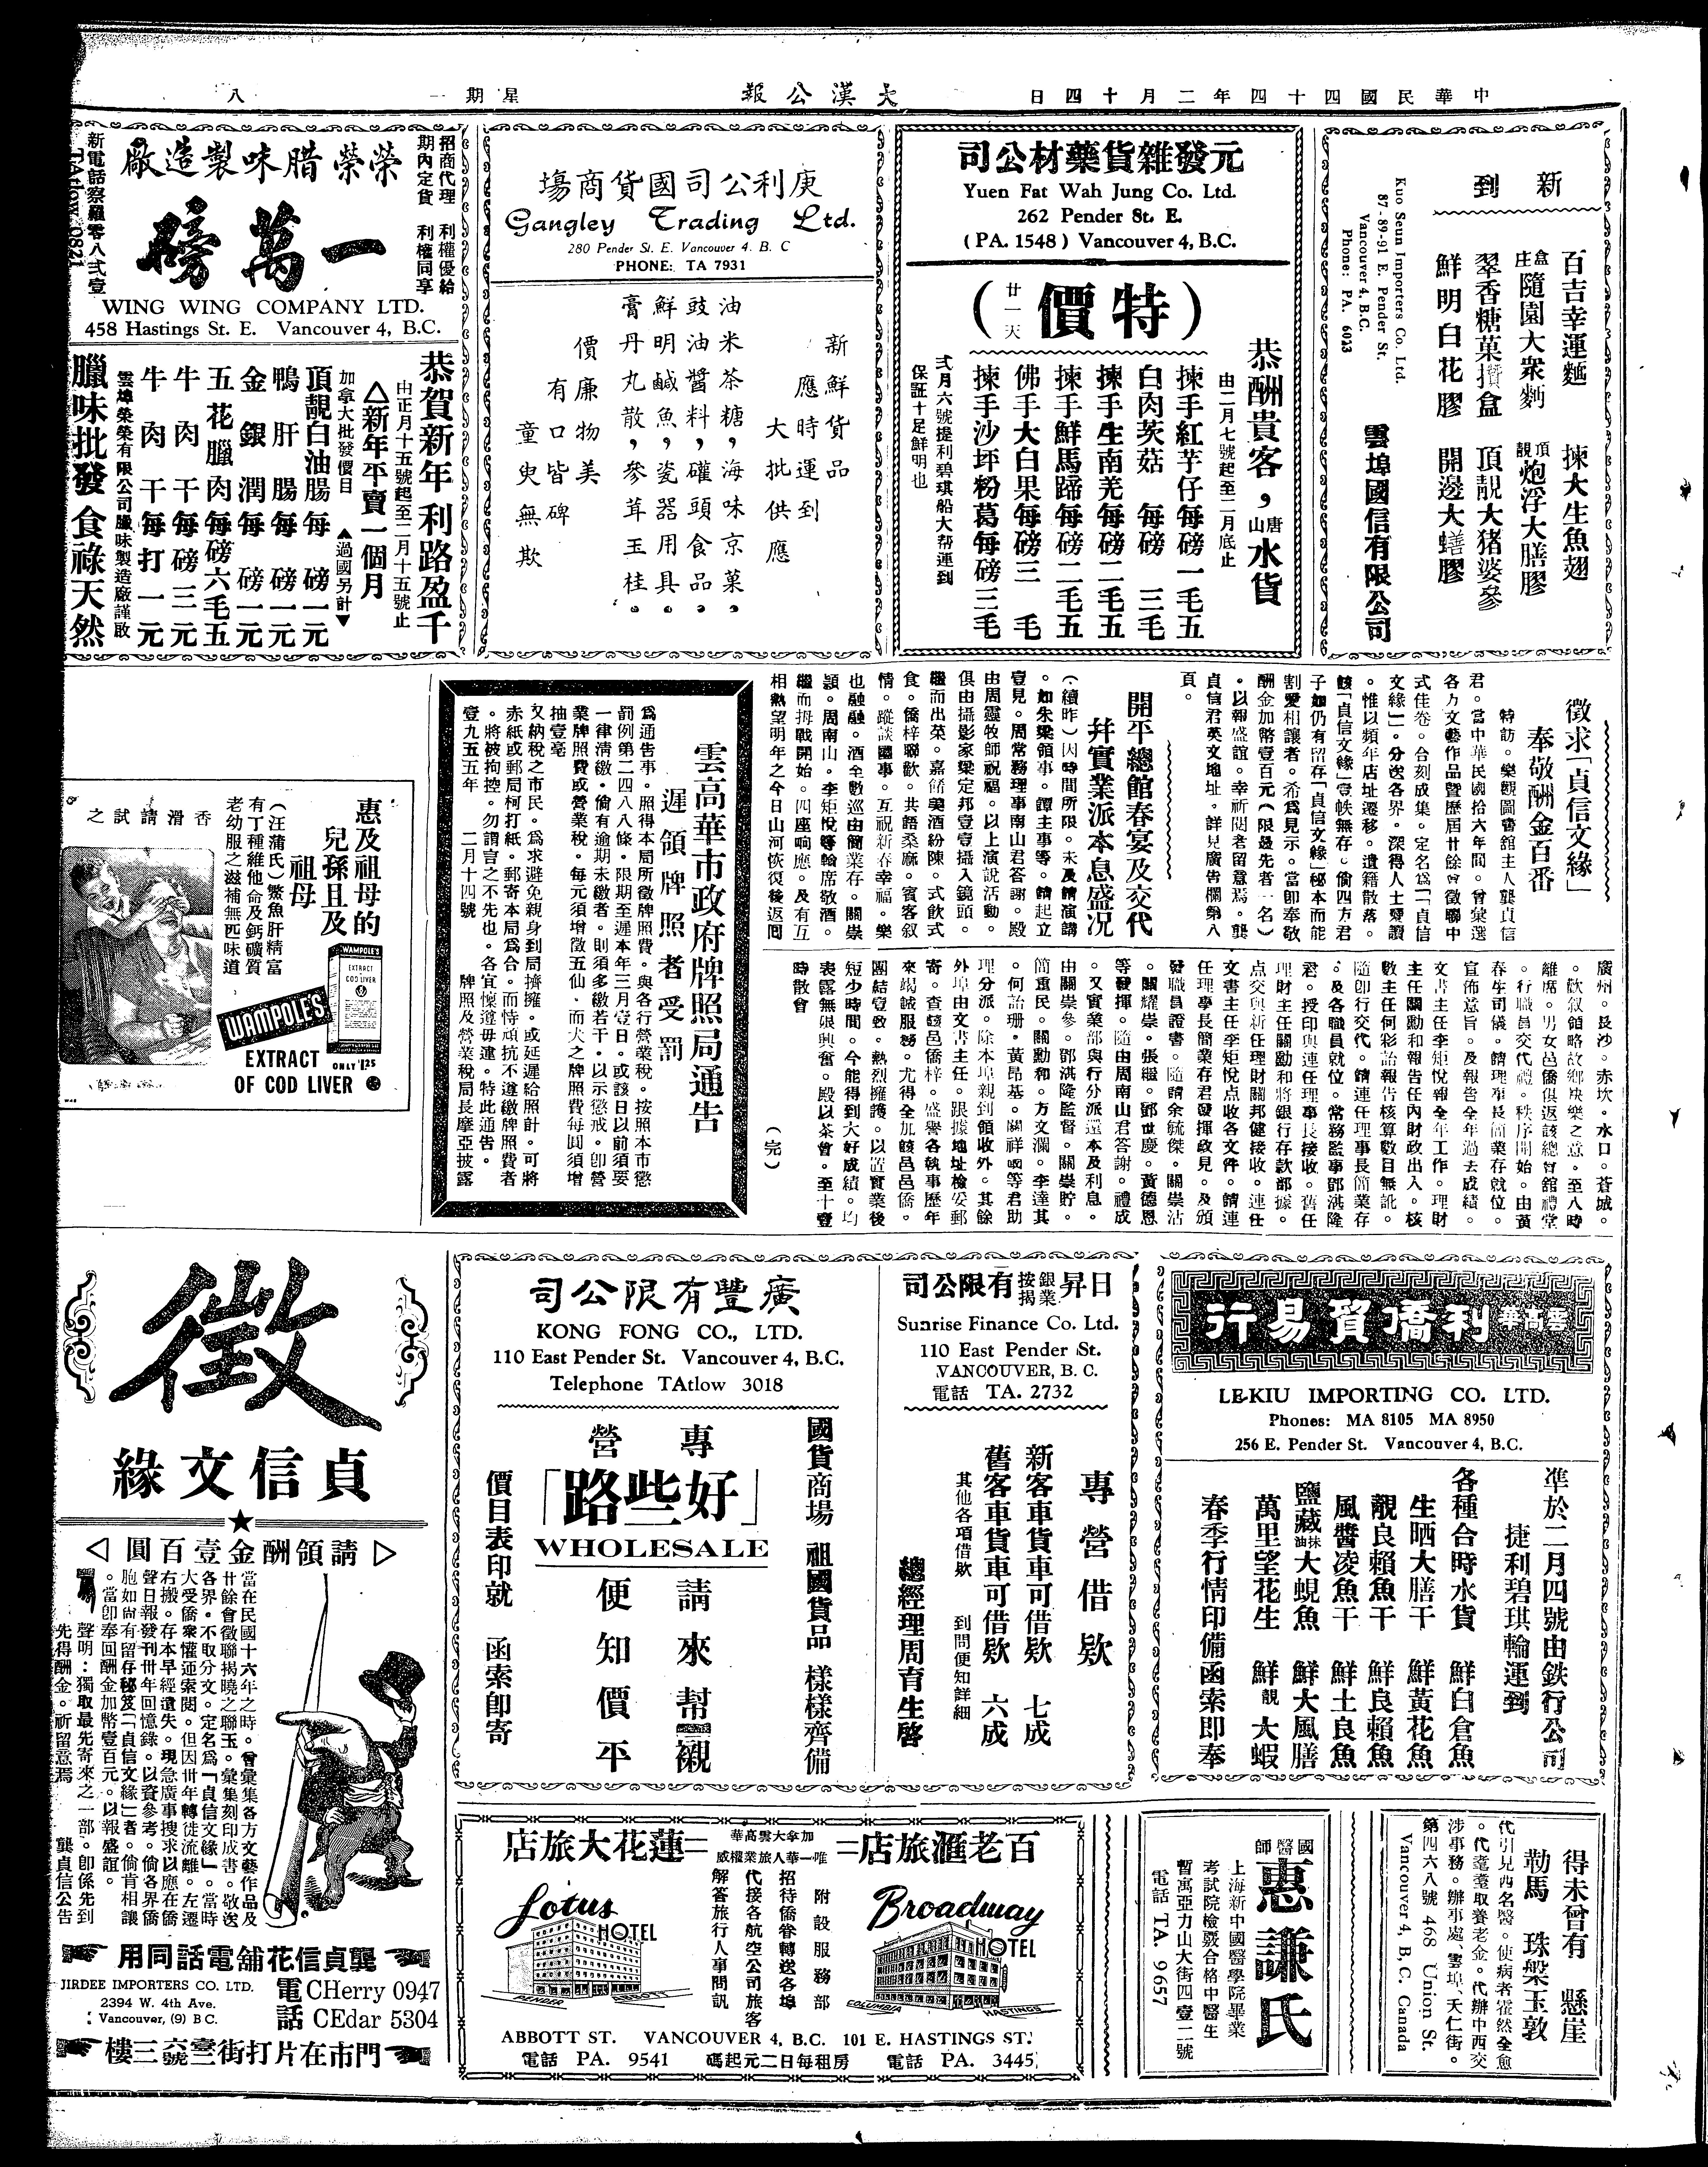 中華民國四十四年二月十四日
大漢公報
星期一
八
新到
百吉幸運麵 揀大生魚翅
盒庄隨園大衆麪 頂靚炮浮大膳膠
翠香糖菓攢盒 頂靚大猪婆參
鮮明白花膠 開邊大鱔膠
雲埠國信有限公司
Kuo Seun Importers Co. Ltd.
87-89-91 E. Pender St.
Vancouver 4, B.C.
Phone: PA. 6013
元發雜貨藥材公司
Yuen Fat Wah Jung Co. Ltd.
262 Pender St. E.
(PA. 1548) Vancouver 4, B.C.
特價(廿一天)
恭酬貴客，唐山水貨
由二月七號起至二月底止
揀手紅芋仔每磅一毛五
白肉茨菇 每磅 三毛
揀手生南羌每磅二毛五
揀手鮮馬蹄每磅二毛五
佛手大白果每磅三 毛
揀手沙坪粉葛每磅三毛
弍月六號提利碧琪船大帮運到
保証十足鮮明也
庚利公司國貨商場
Gangley Trading Ltd.
280 Pender St. E. Vancouver 4. B. C
PHONE: TA 7931
新鮮貨品
應時運到
大批供應
油米茶糖，海味京菓。
豉油醬料，礶頭食品。
鮮明鹹魚，瓷器用具。
膏丹丸散，參茸玉桂。
價廉物美
有口皆碑
童叟無欺
招商代理 利權優給
期內定貨 利權同享
榮榮腊味製造廠
一萬磅
新電話察羅零八弍壹
TAtlow 0821
WING WING COMPANY LTD.
458 Hastings St. E. Vancouver 4, B.C.
恭賀新年 利路盈千
由正月十五號起至二月十五號止
△新年平賣一個月
加拿大批發價目 ▲過國另計▼
頂靚白油腸每 磅一元
鴨肝腸每 磅一元
金銀潤每 磅一元
五花臘肉每磅六毛五
牛肉干每磅三元
牛肉干每打一元
雲埠榮榮有限公司臘味製造廠謹啟
臘味批發 食祿天然
徵求「貞信文緣」
奉敬酬金百番
特訪。樂觀圖書舘主人龔貞信
君。當中華民國拾六年間。曾彙選
各方文藝作品暨歷屆廿餘會徵聯中
式佳卷。合刻成集。定名為「貞信
文緣」。分送各界。深得人士讚
。惟以頻年店址遷移。遺籍散落。
該「貞信文緣」壹帙無存。倘四方君
子如仍有留存「貞信文緣」秘本而能
割愛相讓者。希為見示。當即奉敬
酬金加幣壹百元（限最先者一名）
。以報盛誼。幸祈閱者留意焉。龔
貞信君英文地址。詳見廣告欄第八
頁。
開平總館春宴及交代
并實業派本息盛況
（續昨）因時間所限。未及請演講
。如朱梁領事。譚主事等。請起立
壹見。周常務理事南山君答謝。殿
由周靈牧師祝福。以上演說活動。
俱由攝影家梁定邦壹壹攝入鏡頭。
繼而出菜。嘉餚美酒紛陳。式飲式
食。僑梓聯歡。共語桑麻。賓客叙
情。蹤談國事。互祝新春幸福。樂
也融融。酒全數巡由簡業存。關崇
頴。周南山。李矩悅等輪席敬酒。
繼而拇戰開始。四座响應。及有互
相熱望明年之今日山河恢復後返囬
廣州。長沙。赤坎。水口。蒼城。
歡叙領略故鄉快樂之意。至八時
維席。男女邑僑俱返該總會館禮堂
。行職員交代禮。秩序開始。由黃
春生司儀。請理事長簡業存就位。
宣佈意旨。及報告全年過去成績。
文書主任李矩悅報全年工作。理財
主任關勳和報告任內財政出入。核
數主任何彩詒報告核算數目無訛。
隨卽行交代。請連任理事長簡業存
。及各職員就位。常務監事鄧湛隆
君。授印與連任理事長接收。舊任
理財主任關勳和將銀行存款部據。
點交與新任理財關邦健接收。連任
文書主任李矩悅点收各文件。請連
任理事長簡業存君發揮政見。及頒
發職員證書。隨請余毓傑。關崇沾
。關耀崇。張繼。鄧世慶。黃德恩
等發揮。隨由周南山君答謝。禮成
。又實業部與行分派還本及利息。
由關崇參。鄧湛隆監督。關崇貯。
簡重民。關勳和。方文瀾。李達其
。何詒珊。黃昂基。關祥等君助
理分派。除本埠親到領收外。其餘
外埠由文書主任。跟據地址檢妥郵
寄。查該邑僑梓。盛譽各執事歷年
來竭誠服務。尤得全加該邑邑僑。
團結壹致。熱烈擁護。以置實業後
短少時間。今能得到大好成績。均
表露無限興奮。殿以茶會。至十壹
時散會
（完）
雲高華市政府牌照局通告
遲領牌照者受罰
為通告事。照得本局所徵牌照費。與各行營業稅。按照本市懲
罰例第二四八八條。限期至遲本年三月壹日。或該日以前須要
一律清繳。倘有逾期未繳者。則須多繳若干。以示懲戒。卽營
業牌照費或營業稅。每元須增徵五仙。而犬之牌照費每圓須增
抽壹毫
又納稅之市民。為求避免親身到局擠擁。或延遲給照計。可將
赤紙或郵局柯打紙。郵寄本局為合。而恃頑抗不遵繳牌照費者
。將被拘控。勿謂言之不先也。各宜懍遵毋違。特此通告。
壹九五五年 二月十四號 牌照及營業稅局長摩亞披露
惠及祖母的
兒孫且及
祖母
（汪蒲氏）鰵魚肝精富
有丁種維他命及鈣礦質
老幼服之滋補無匹味道
香滑請試之
WAMPOLE'S
EXTRACT
COD LIVER
WAMPOLE'S
EXTRACT ONLY $1.25
OF COD LIVER
雲高華利僑貿易行
LE-KIU IMPORTING CO. LTD.
Phones: MA 8105 MA 8950
256 E. Pender St. Vancouver 4, B.C.
凖於二月四號由鉄行公司
捷利碧琪輪運到
各種合時水貨 鮮白倉魚
生晒大膳干 鮮黃花魚
靚良賴魚干 鮮良賴魚
風醬凌魚干 鮮土良魚
鹽藏抹油大蜆魚 鮮大風膳
萬里望花生 鮮靚大蝦
春季行情印備函索即奉
日昇銀業按揭有限公司
Sunrise Finance Co. Ltd.
110 East Pender St.
VANCOUVER, B. C.
電話 TA. 2732
專營借欵
新客車貨車可借欵 七成
舊客車貨車可借欵 六成
其他各項借欵 到問便知詳細
總經理周育生啓
廣豐有限公司
KONG FONG CO., LTD.
110 East Pender St. Vancouver 4, B.C.
Telephone TAtlow 3018
國貨商場 祖國貨品 樣樣齊備
專營
「好些路」
WHOLESALE
請來幫襯
便知價平
價目表印就 函索即寄
徵
貞信文緣
請領酬金壹百圓
當在民國十六年之時。曾彙集各方文藝作品及
廿餘會徵聯揭曉之聯玉。彙集刻印成書。敬送
各界。不取分文。定名為「貞信文緣」。當時
大受僑衆懽迎索閱。但因卅年轉徙流離。左遷
右搬。存本早經遺失。現急廣事搜求以應在僑
聲日報發刊卅年回憶錄。以資參考。倘各界僑
胞如尚有留存秘笈「貞信文緣」者。倘肯相讓
。當卽奉回酬金加幣壹百元。以報盛誼。
聲明：獨取最先寄來之一部。卽係先到
先得酬金。祈留意焉 龔貞信公告
龔貞信花舖電話同用
JIRDEE IMPORTERS CO. LTD.
2394 W. 4th Ave.
Vancouver, (9) B C.
電話 CHerry 0947
CEdar 5304
門市在片打街壹三六號三樓
百老滙旅店
加拿大雲高華
唯一華人旅業權威
蓮花大旅店
Broadway HOTEL
COLUMBIA HASTINGS
附設服務部
招待僑眷轉送各埠
代接各航空公司旅客
解答旅行人事問訊
Lotus HOTEL
PENDER ABBOTT
ABBOTT ST. VANCOUVER 4, B.C. 101 E. HASTINGS ST.
電話 PA. 9541 房租每日二元起碼 電話 PA. 3445
國醫師
惠謙氏
上海新中國醫學院畢業
考試院檢覈合格中醫生
暫寓亞力山大街四壹二號
電話 TA. 9657
得未曾有 懸崖
勒馬 珠槃玉敦
代引見西名醫。使病者霍然全愈
。代耄耋取養老金。代辦中西交
涉事務。辦事處、雲埠、天仁街。
第四六八號 468 Union St.
Vancouver 4, B.C. Canada